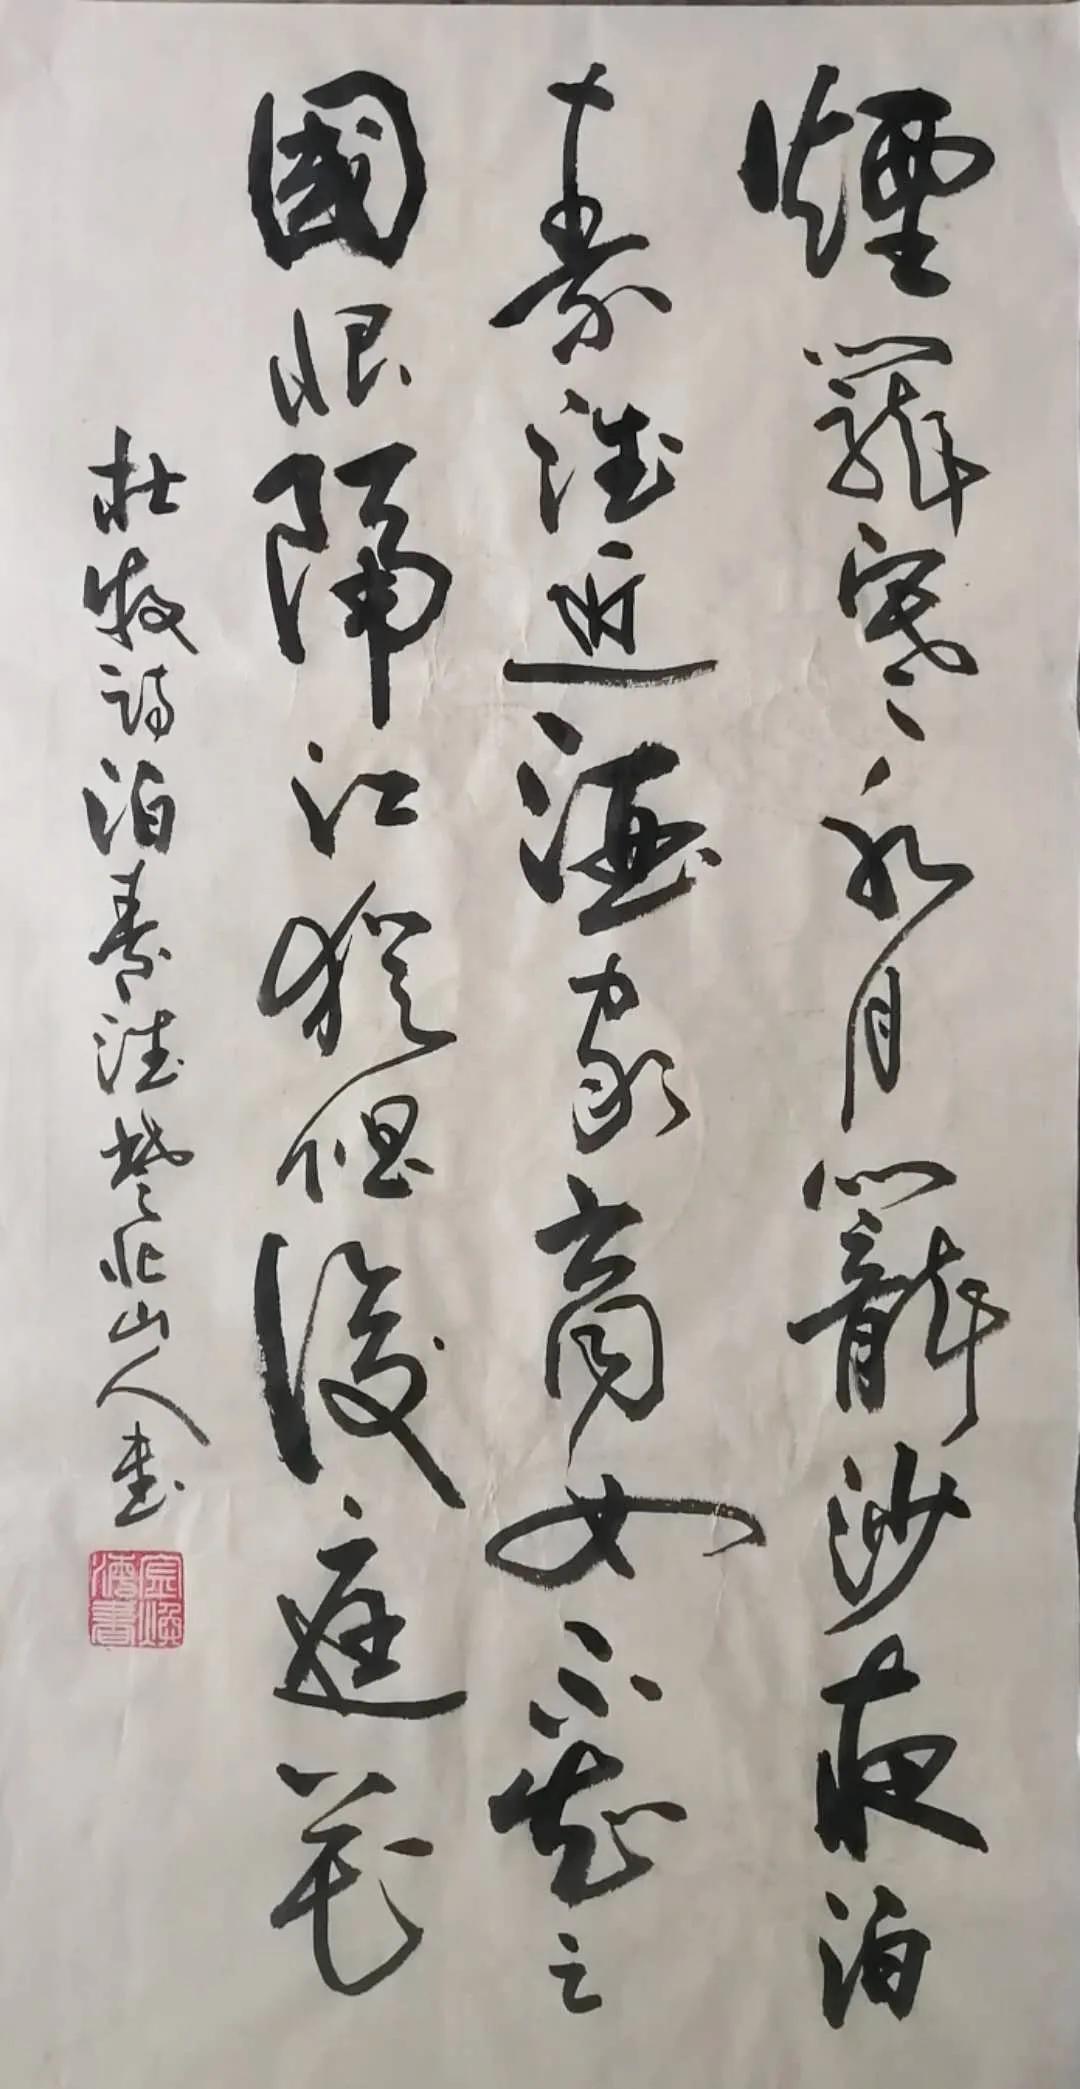 煙籠寒水月籠沙夜泊
秦淮近酒家商女不知亡
國恨隔江猶唱後庭花
杜牧詩泊秦淮楚北山人書